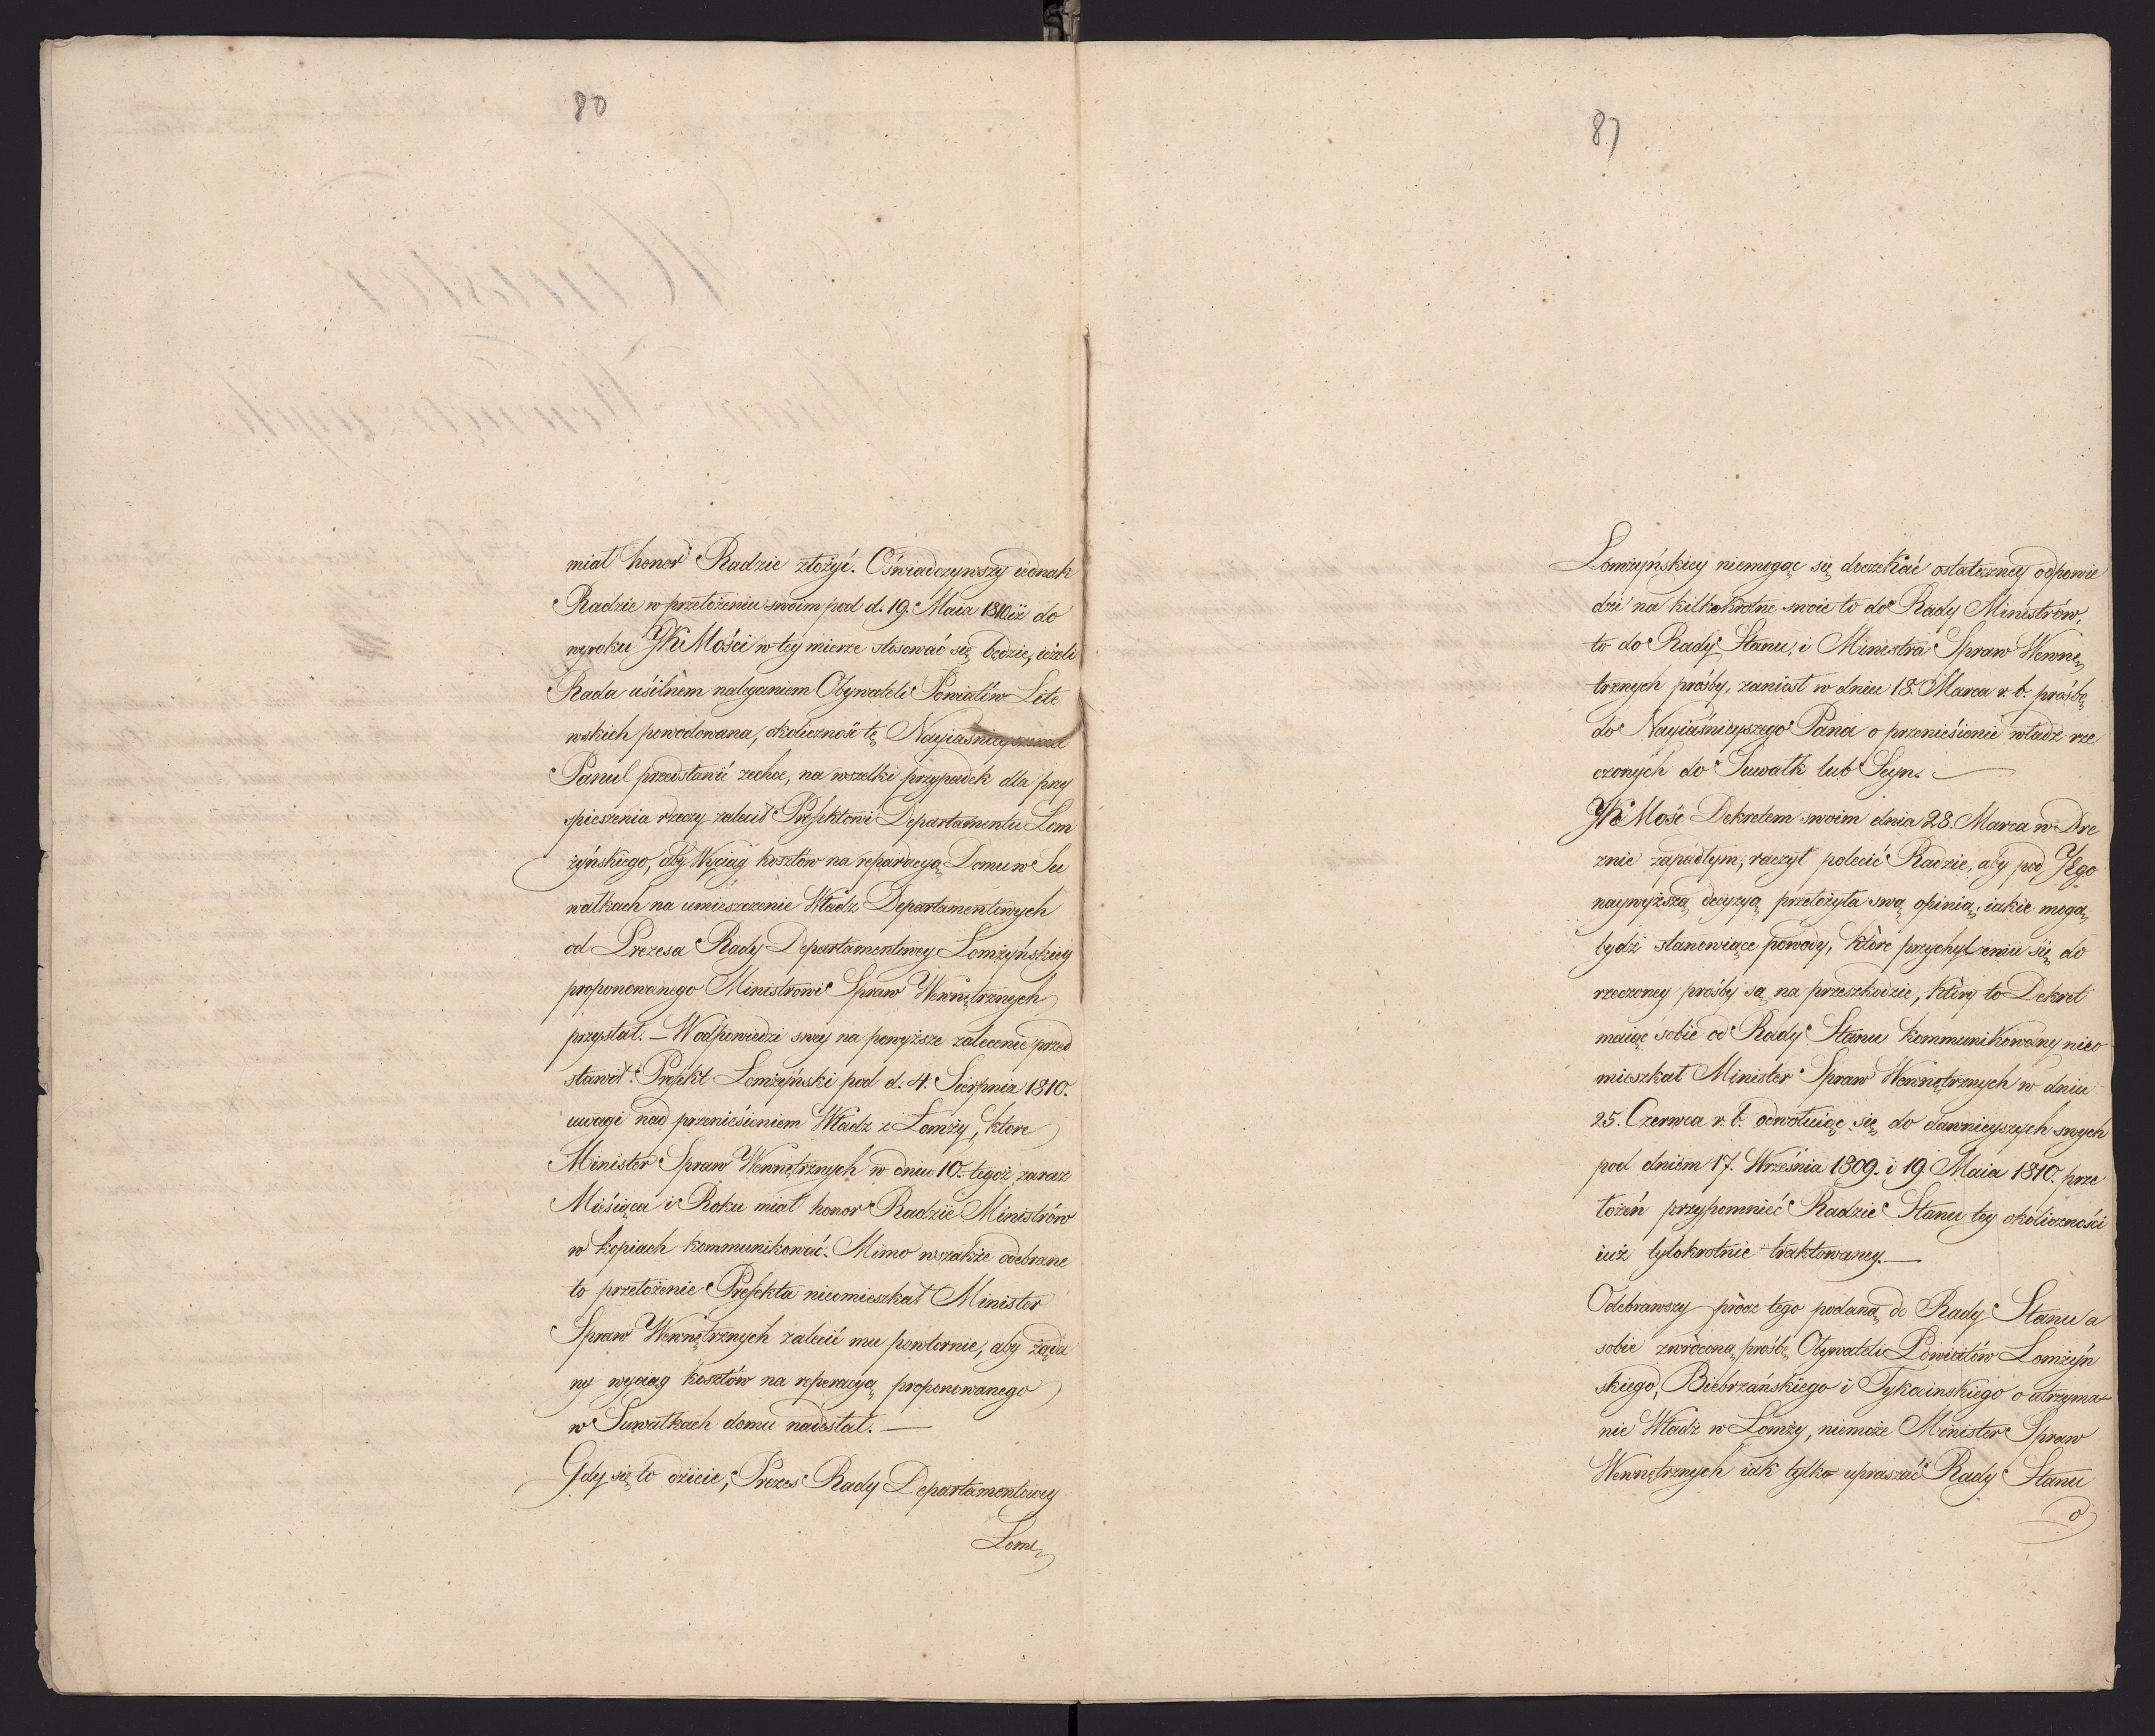 80
miał honor Radzie złożyć. Oświadczywszy iednak
Radzie w przełożeniu swoim pod d. 19. Maia 1810. iż do
wyroku JKMości w tey mierze stosować się będzie, ieżeli
Rada usilnem naleganiem Obywateli Powiatów Lite
wskich powodowana, okoliczność tę Nayiaśnieyszemu
Panu przedstawić zechce, na wszelki przypadek dla przy
spieszenia rzeczy zalecił Prefektowi Departamentu Łom
żyńskiego, aby Wyciąg kosztów na reparacyą Domu w Su
wałkach na umieszczenie Władz Departamentowych
od Prezesa Rady Departamentowey Łomżyńskiey
proponowanego Ministrowi Spraw Wewnętrznych
przysłał. — W odpowiedzi swey na powyższe zalecenie przed
stawił Prefekt Łomżyński pod d. 4. Sierpnia 1810.
uwagi nad przeniesieniem Władz z Łomży, które
Minister Spraw Wewnętrznych w dniu 10. tegoż zaraz
Miesiąca i Roku miał honor Radzie Ministrów
w kopiach kommunikować. Mimo wszakże odebrane
to przełożenie Prefekta nieomieszkał Minister
Spraw Wewnętrznych zalecić mu powtornie, aby żąda
ny wyciąg kosztów na reperacyą proponowanego
w Suwałkach domu nadesłał. —
Gdy się to dzieie, Prezes Rady Departamentowey
Łom
87
Łomżyńskiey niemogąc się doczekać ostateczney odpowie
dzi na kilkokrotne swoie to do Rady Ministrów,
to do Rady Stanu, i Ministra Spraw Wewnę
trznych prośby, zaniosł w dniu 18. Marca r. b. prośbę
do Nayiaśnieyszego Pana o przeniesienie władz rze
czonych do Suwałk lub Seyn. —
JKMość Dekretem swoim dnia 28. Marca w Dre
znie zapadłym, raczył polecić Radzie, aby pod Jego
naywyższą decyzyą przełożyła swą opinią, iakie mogą
bydź stanowiące powody, które przychyleniu się do
rzeczoney prośby są na przeszkodzie, który to Dekret
maiąc sobie od Rady Stanu kommunikowany nieo
mieszkał Minister Spraw Wewnętrznych w dniu
25. Czerwca r. b. odwołuiąc się do dawnieyszych swych
pod dniem 17. Września 1809. i 19. Maia 1810. prze
łożeń przypomnieć Radzie Stanu tey okoliczności
iuż tylokrotnie traktowaney. —
Odebrawszy prócz tego podaną do Rady Stanu a
sobie zwróconą prośbę Obywateli Powiatów Łomżyń
skiego, Biebrzańskiego i Tykocinskiego o utrzyma
nie Władz w Łomży, niemoże Minister Spraw
Wewnętrznych iak tylko upraszać Rady Stanu
o